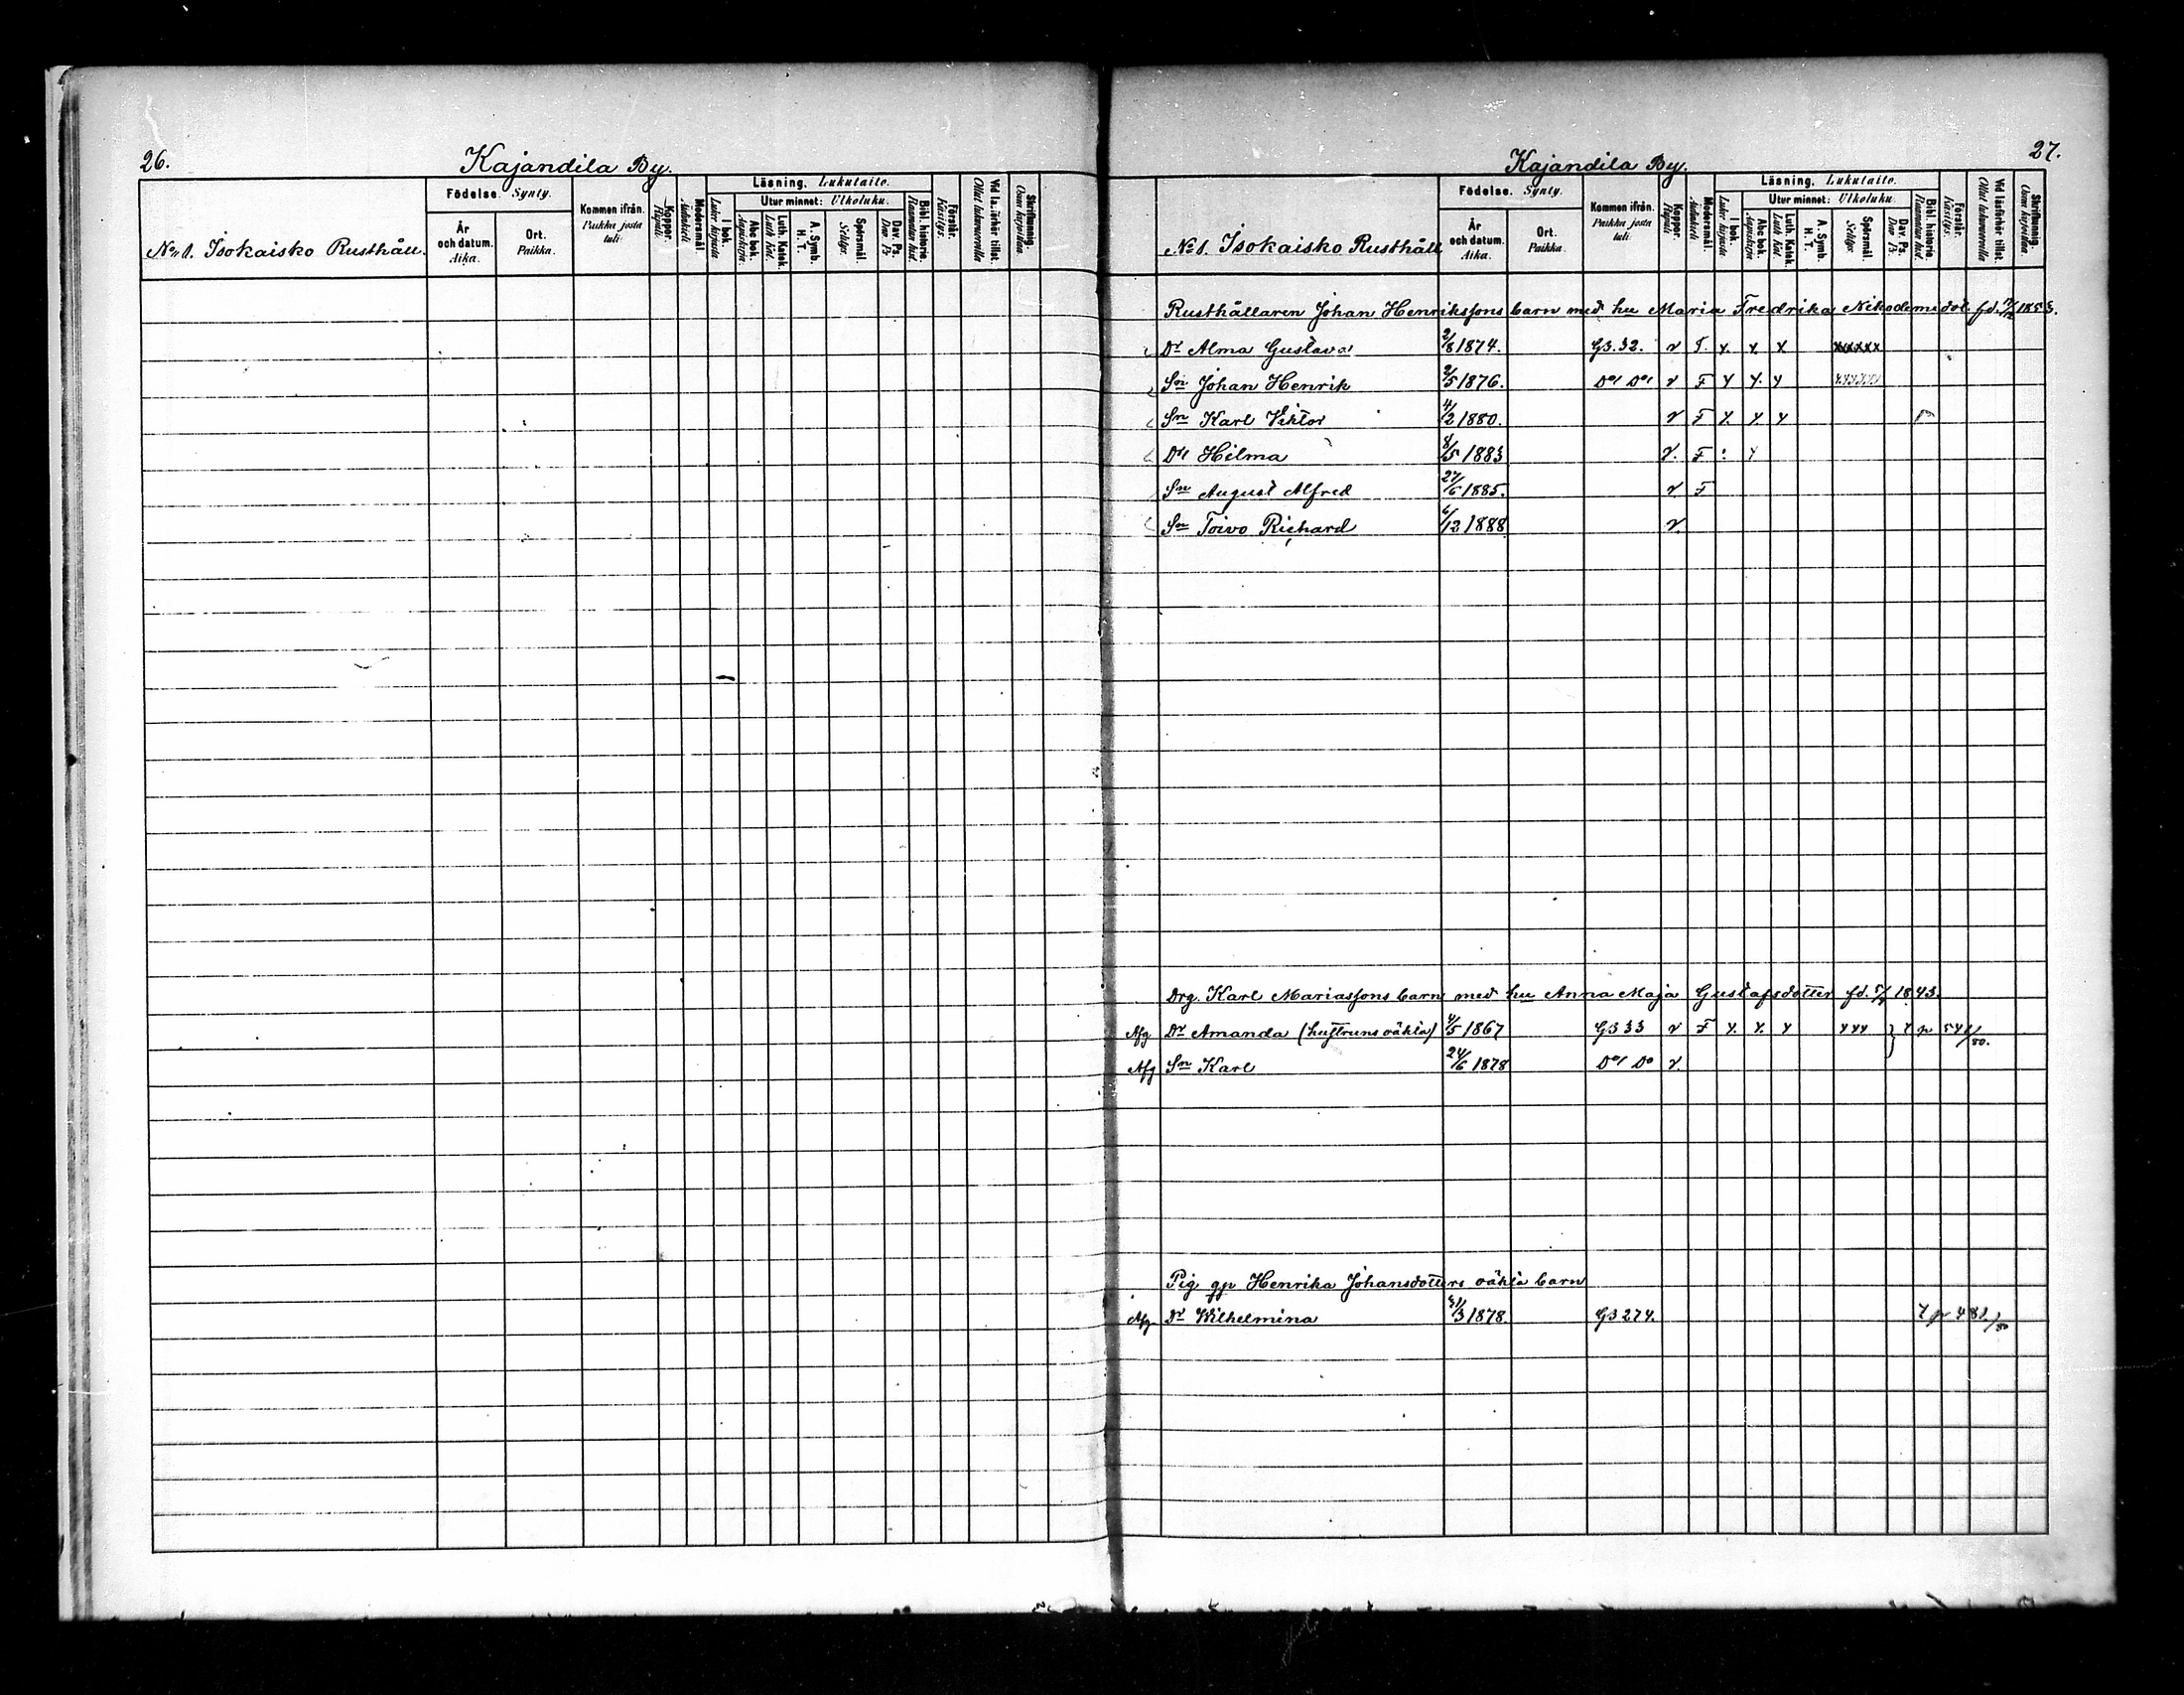 26.
Kajandila By.
No 1. Isokaisko Rusthåll.
Födelse. Synty.
År och datum. Aika.
Ort. Paikka.
Kommen ifrån. Paikka josta tuli.
Koppor. Rupuli.
Modersmål. Äidinkieli.
Läsning. Lukutaito.
I bok. Luku kirjasta
Utur minnet: Ulkoluku.
Abc bok. Aapiskirja.
Luth. Katek. Luth Kat.
A. Symb. H. T.
Spörsmål. Selitys.
Dav. Ps. Dav Ps
Bibl. historie. Raamatun hist.
Förstår. Käsitys.
Vid läsförhör tillst. Ollut lukuvuorolla
Skriftkunnig. Osaa kirjoittaa.
27.
Kajandila By.
No 1. Isokaisko Rusthåll
Födelse. Synty.
År och datum. Aika.
Ort. Paikka.
Kommen ifrån. Paikka josta tuli.
Koppor. Rupuli.
Modersmål. Äidinkieli.
Läsning. Lukutaito.
I bok. Luku kirjasta
Utur minnet: Ulkoluku.
Abc bok. Aapiskirja.
Luth. Katek. Luth Kat.
A. Symb. H. T.
Spörsmål. Selitys.
Dav. Ps. Dav Ps
Bibl. historie. Raamatun hist.
Förstår. Käsitys.
Vid läsförhör tillst. Ollut lukuvuorolla
Skriftkunnig. Osaa kirjoittaa.
Rusthållaren Johan Henrikssons barn med hu Maria Fredrika Nikodemidot. fd. 1853.
Dr Alma Gustava 2/8 1874. G3.32. v F. x. x. x xxxxx
Sn Johan Henrik 2/5 1876. Do Do v F x x. x xxxxx
Sn Karl Viktor 4/2 1880. v F x. x. x
Dr Hilma 8/5 1883 v. F : x
Sn August Alfred 27/6 1885. v F
Sn Toivo Richard 6/12 1888 v.
Drg. Karl Mariassons barn med hu Anna Maja Gustafsdotter fd. 1843.
Afg Dr Amanda (hustruns oäkta) 4/5 1867 G3 33 v F x. x. x xxx } t p 541/80.
Afg Sn Karl 24/6 1878 Do Do v.
Pig gp Henrika Johansdotters oäkta barn
Afg Dr Wilhelmina 1878. G3 274. t p 481/80